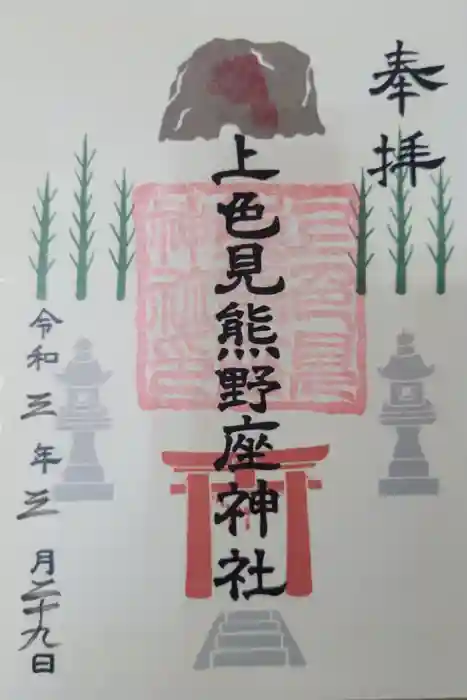 奉拝
上色見熊野座神社
令和三年三月二十九日